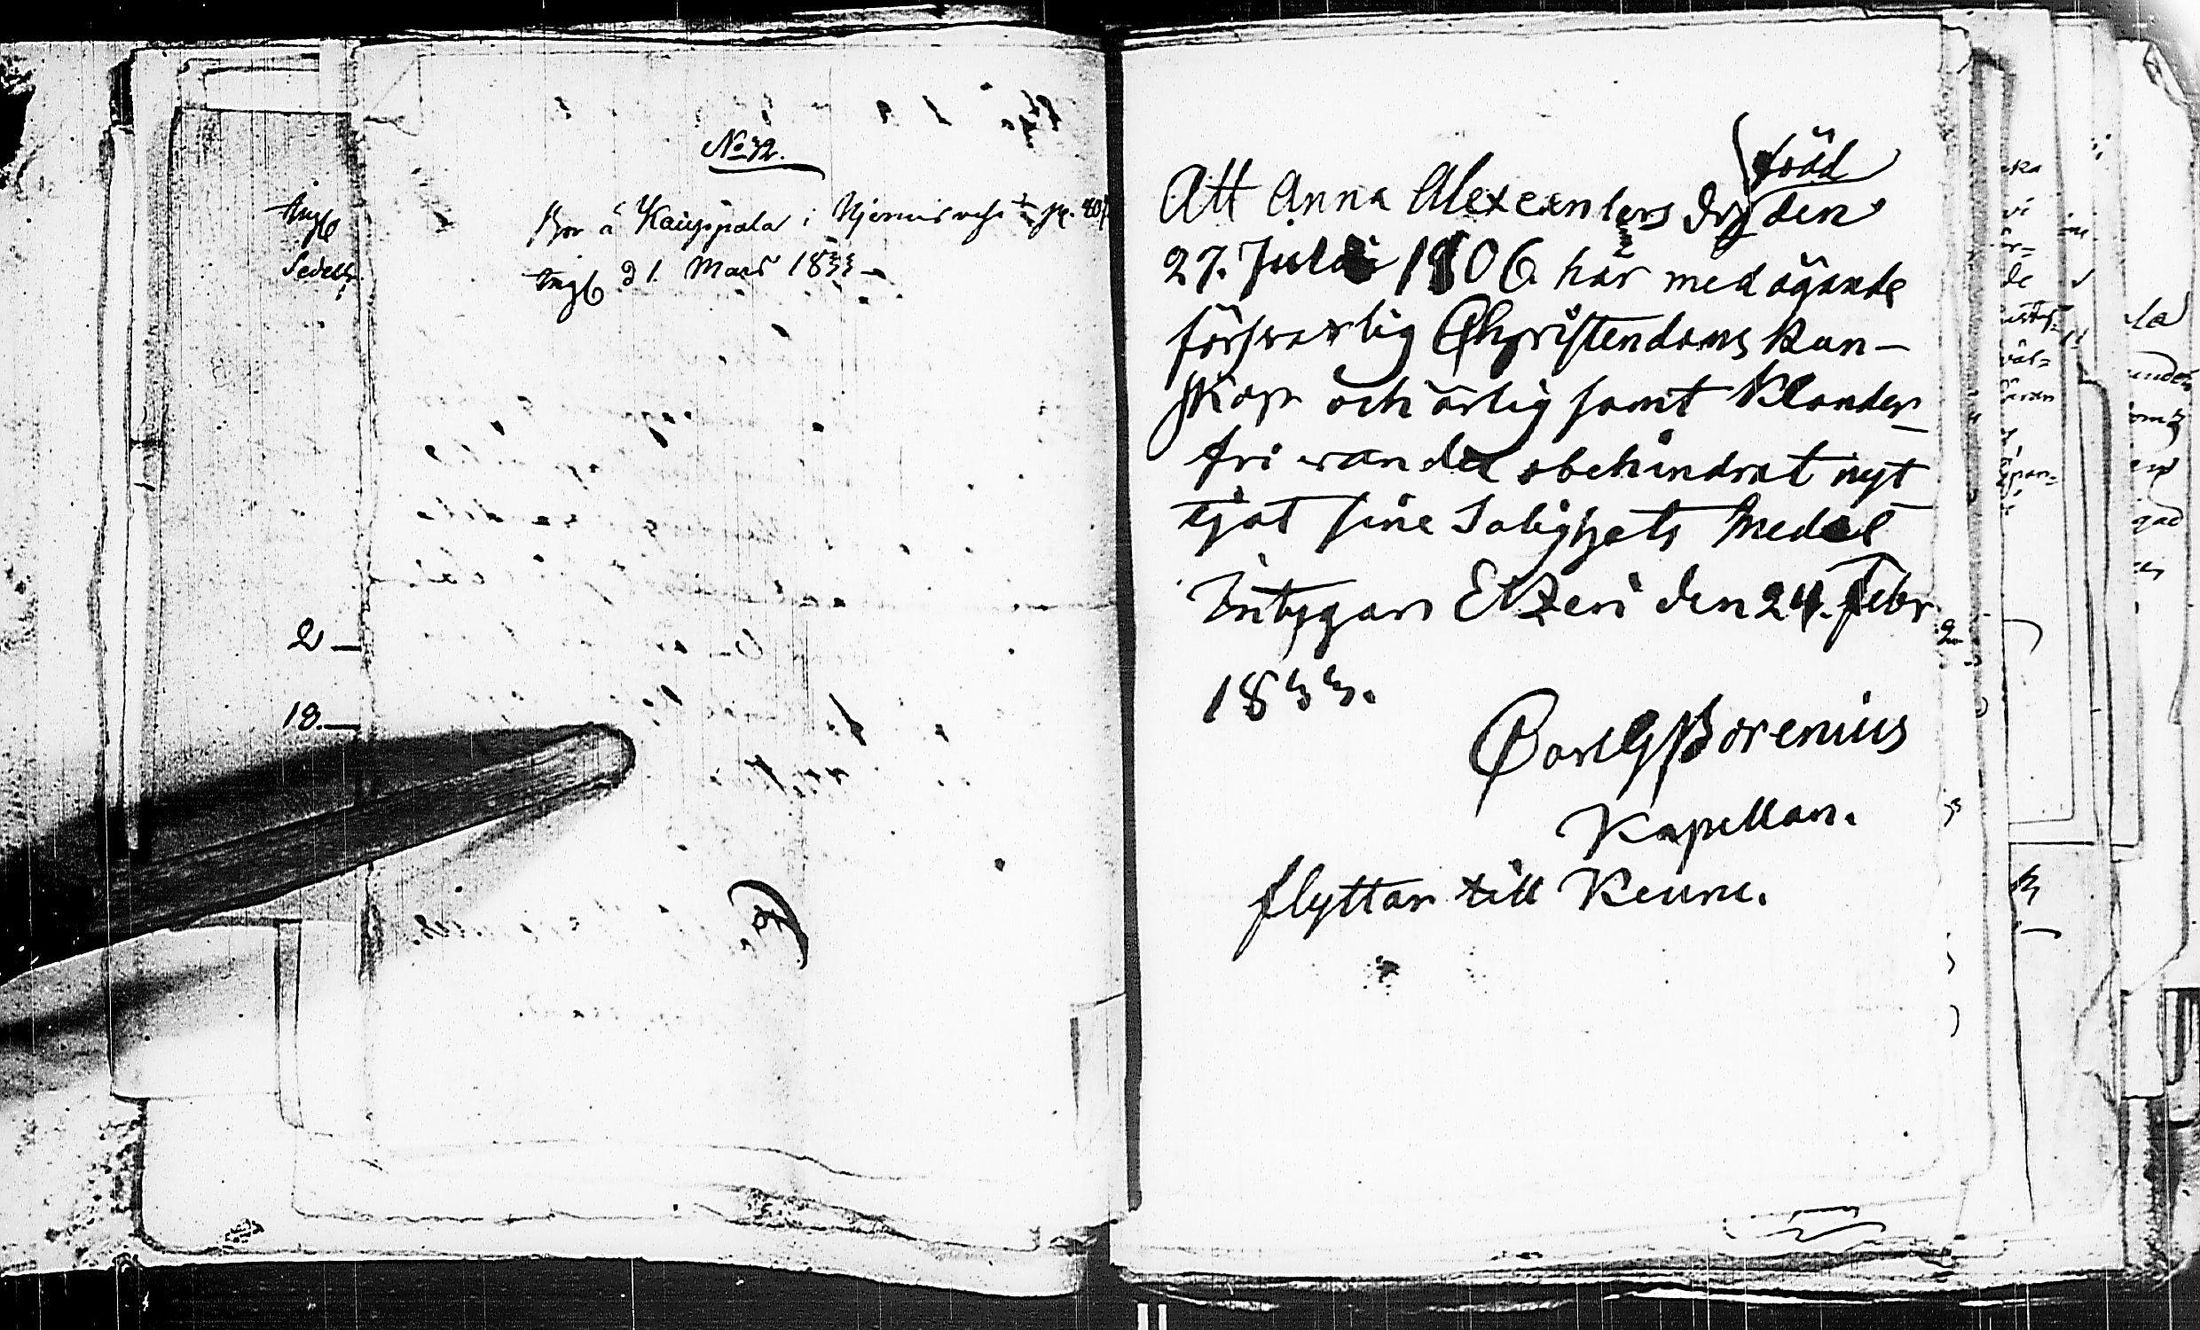 No 32.
Ingb
Sedell
Bor å Kauppala i
Ingb d 1. Mars 1833
2
18.
född
Att Anna Alexanders Dr den
27. Juli 1806 har med ägande
försvarlig Christendoms kun-
skap och ärlig samt klander-
fri vandel obehindrat nyt
tjat sine Salighets medel
Intygar Etzeri den 24. Febr
1833.
Carl G Borenius
Kapellan.
flyttar till Keuru.